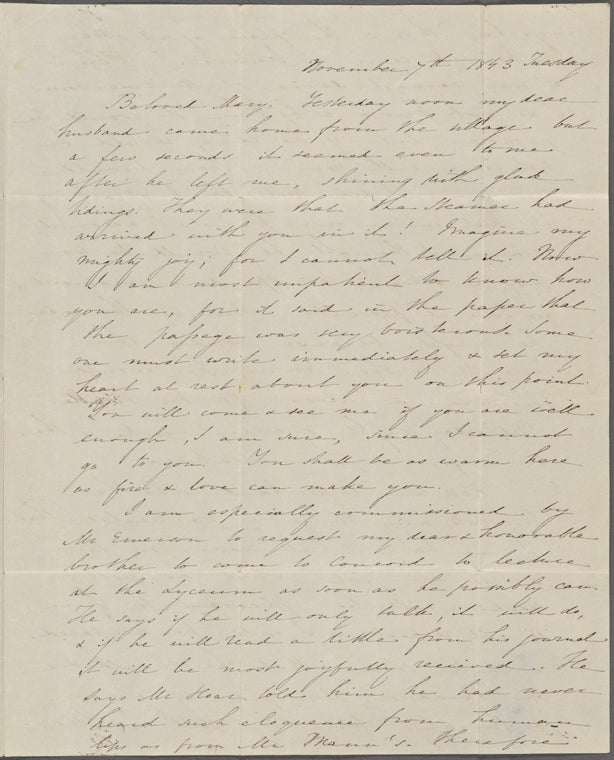 November 7th 1843 Tuesday
Beloved Mary. Yesterday noon my dear
husband came home from the village but
a few seconds it seemed even to me
after he left me, shining with glad
tidings. They were that the Steamer had
arrived with you in it! Imagine my
mighty joy; for I cannot tell it. Now
I am most impatient to know how
you are, for it said in the paper that
the passage was very boisterous. Some
one must write immediately & set my
heart at rest about you on this point.
You will come & see me if you are well
enough, I am sure, since I cannot
go to you. You shall be as warm here
as fire & love can make you.
I am especially commissioned by
Mr Emerson to request my dear & honorable
brother to come to Concord to lecture
at the Lyceum as soon as he possibly can.
He says if he will only talk, it will do,
& if he will read a little from his journal
it will be most joyfully recieved. He
says Mr Hoar told him he had never
heard such eloquence from human
lips as from Mr Mann's. Therefore